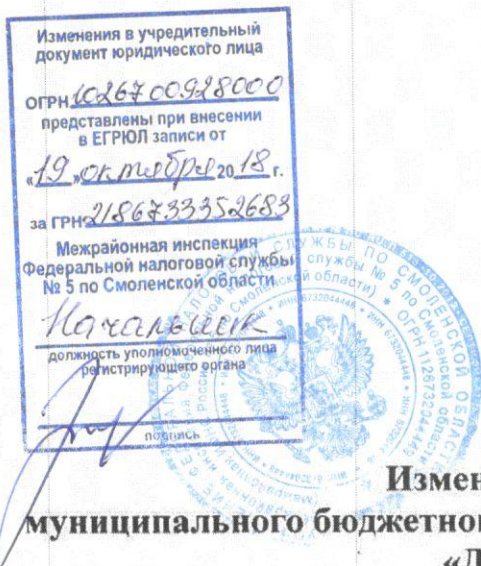 Изменения в учредительный
документ юридического лица
ОГРН 1026700928000
представлены при внесении
в ЕГРЮЛ записи от
«19» октября 2018 г.
за ГРН 2186733352683
Межрайонная инспекция
Федеральной налоговой службы
№ 5 по Смоленской области
Начальник
должность уполномоченного лица
регистрирующего органа
подпись
Измен
муниципального бюджетног
«Д